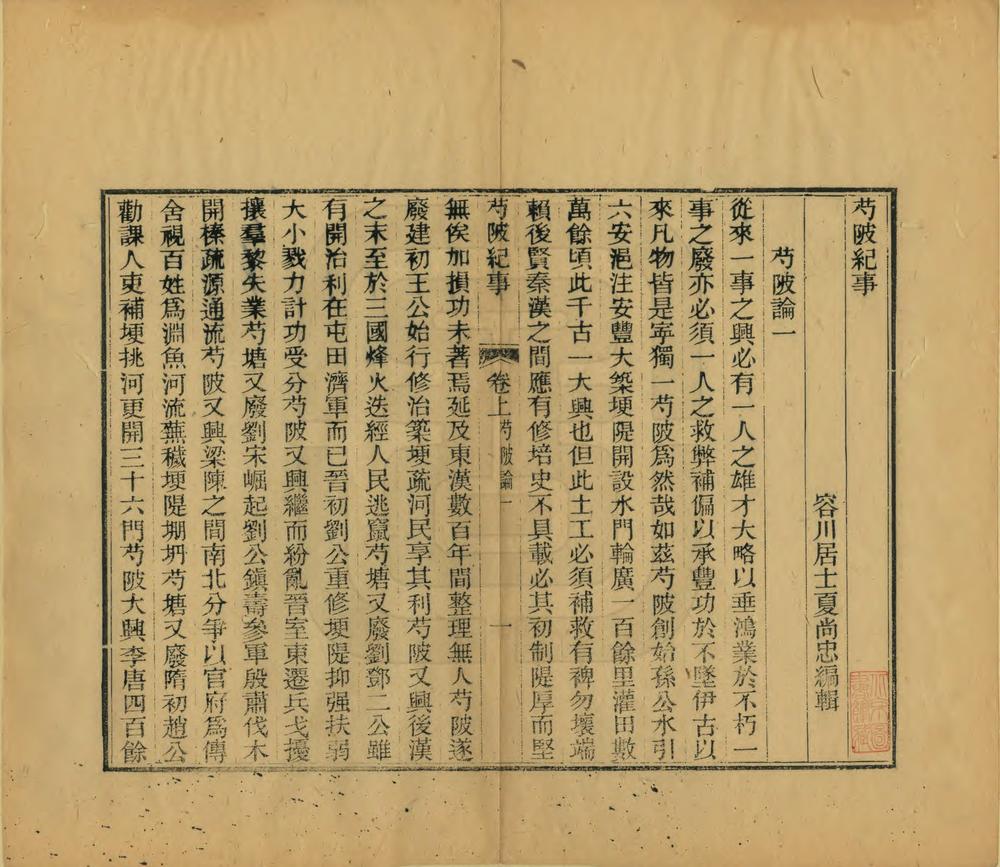 芍陂紀事
容川居士夏尚忠編輯
芍陂論一
從來一事之興必有一人之雄才大略以垂鴻業於不朽一
事之廢亦必須一人之救弊補偏以承豐功於不墜伊古以
來凡物皆是寧獨一芍陂爲然哉如茲芍陂創始孫公水引
六安浥注安豐大築埂隄開設水門輪廣一百餘里灌田數
萬餘頃此千古一大興也但此土工必須補救有裨勿壞端
賴後賢秦漢之間應有修培史不具載必其初制隄厚而堅
芍陂紀事 卷上 芍陂論一 一
無俟加損功未著焉延及東漢數百年間整理無人芍陂遂
廢建初王公始行修治築埂疏河民享其利芍陂又興後漢
之末至於三國烽火迭經人民逃竄芍塘又廢劉鄧二公雖
有開治利在屯田濟軍而已晉初劉公重修埂隄抑强扶弱
大小戮力計功受分芍陂又興繼而紛亂晉室東遷兵戈擾
攘羣黎失業芍塘又廢劉宋崛起劉公鎮壽參軍殷肅伐木
開榛疏源通流芍陂又興梁陳之間南北分爭以官府爲傳
舍視百姓爲淵魚河流蕪穢埂隄堋坍芍塘又廢隋初趙公
勸課人吏補埂挑河更開三十六門芍陂大興李唐四百餘